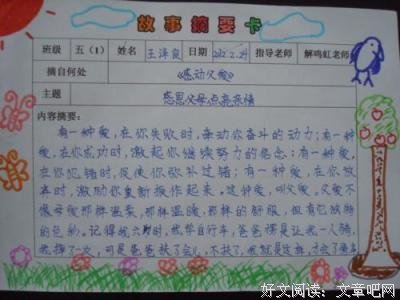 故事摘要卡
班级 五（1） 姓名 王泽良 日期 2012.2.29 指导老师 解鸣虹老师
摘自何处 《感动父爱》
主题 感恩父母点亮亲情
内容摘要：
有一种爱，在你失败时，带动你奋斗的动力；有一
种爱，在你成功时，激起你继续努力的信念；有一种爱，
在你犯错时，促使你弥补过错；有一种爱，在你放
弃时，激励你重新振作起来。这种爱，叫父爱。父爱不
像母爱那样温柔，那样温暖，那样的舒服，但有它独特
的色彩。记得我六岁时，我学自行车，爸爸愣是让我一人骑，
我摔了一次，可是爸爸扶了会儿，不扶了，我就是这样，才会了骑车
好文阅读：文章吧网